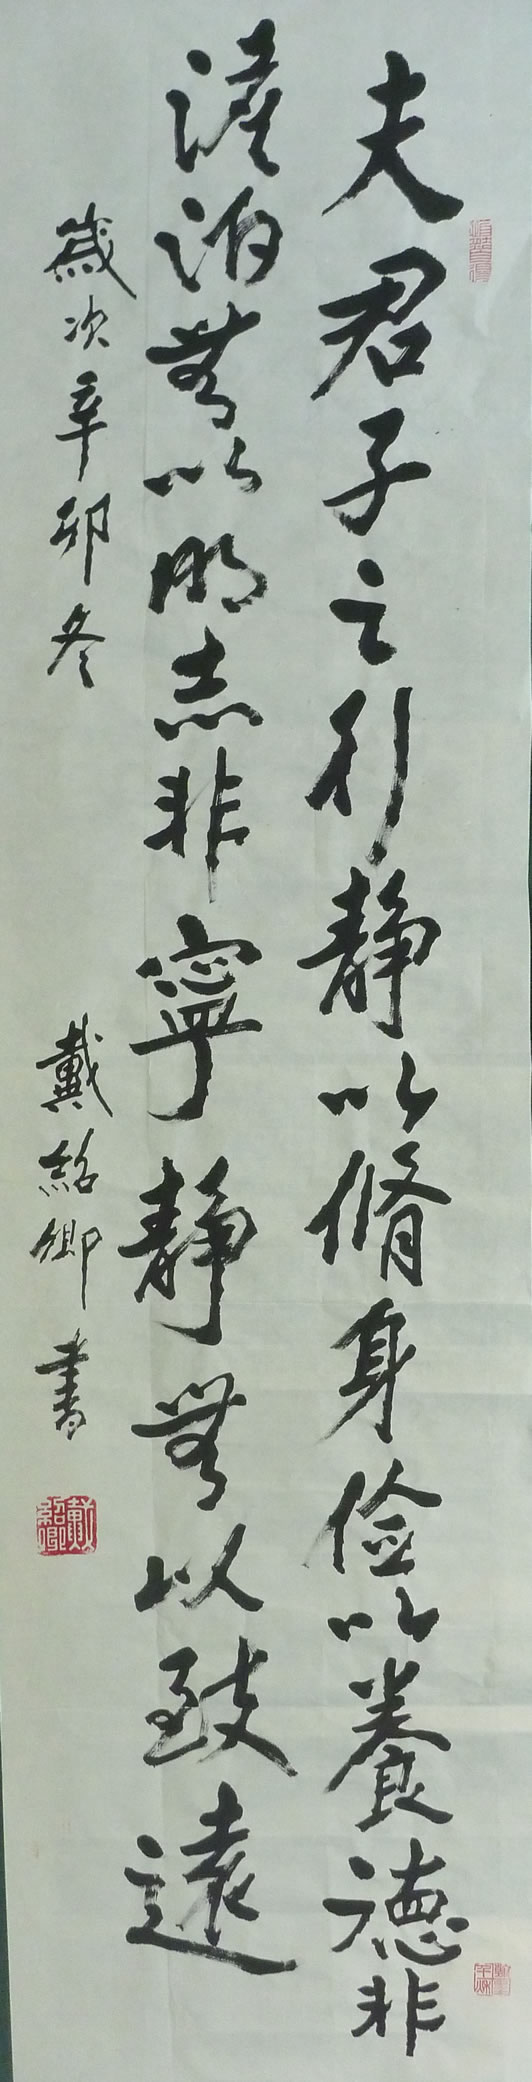 夫君子之行静以脩身俭以養德非
澹泊無以明志非寧静無以致遠
歲次辛卯冬 戴紹卿書
戴紹卿